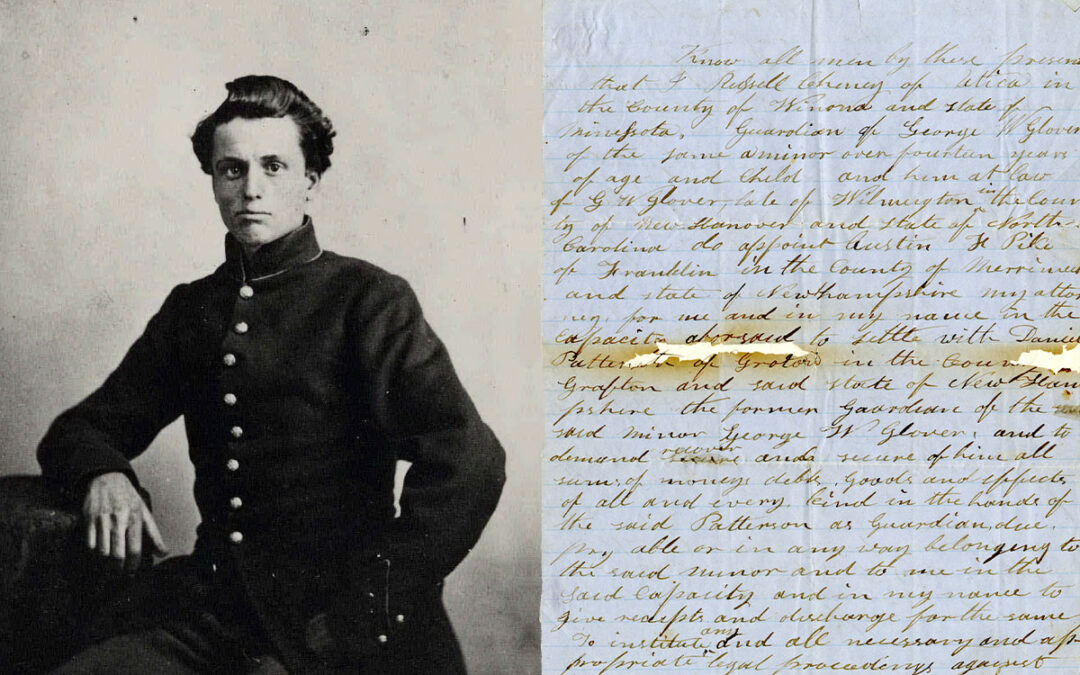 Know all men by these presen
that I Russell Cheney of Utica in
the County of Winona and State of
Minnesota, Guardian of George W Glover
of the same a minor over fourteen years
of age and Child and him at law
of G W Glover late of Wilmington in the Coun
ty of New Hanover and State of North
Carolina do appoint Austin F Pike
of Franklin in the County of Merrimac
and state of New hampshire my attor
ney, for me and in my name in the
Capacity aforsaid to settle with Daniel
Patterson of Groton in the Coun
Grafton and said state of New Ham
pshire the former Guardian of the
said minor George W Glover, and to
demand recover and secure of him all
sums of moneys debts, Goods and effects
of all and every kind in the hands of
the said Patterson as Guardian, due,
pay able or in any way belonging to
the said minor and to me in the
said Capacity and in my name to
give receipts and discharge for the same
To institute any and all necessary and ap
propriate legal proceedings against